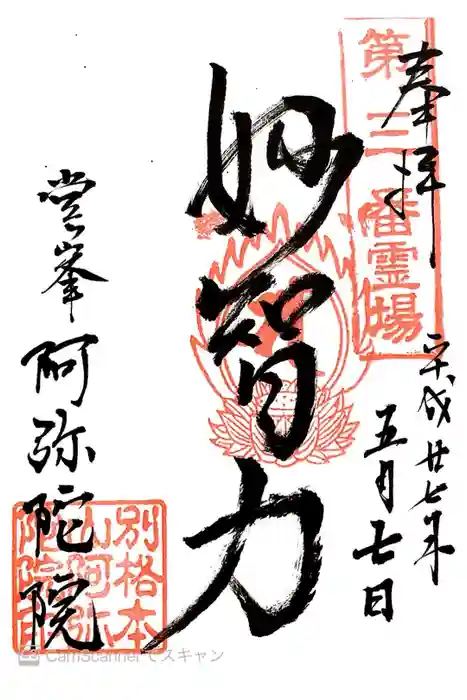 奉拝
第三番霊場
平成廿七年
五月七日
妙智力
阿弥陀院
別格本
山阿弥
陀院印
CamScannerでスキャン